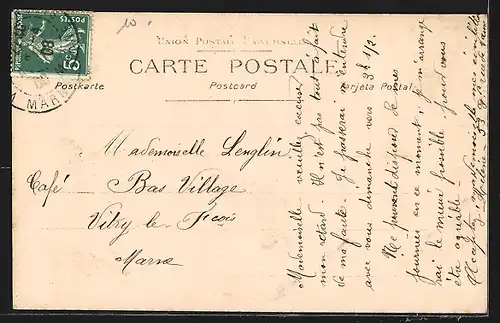 10
UNION POSTALE UNIVERSELLE
CARTE POSTALE
Postkarte
Postcard
Tarjeta Postal
5c
08
MARNE
Mademoiselle Lenglin
Café Bas Village
Vitry-le-Fçois
Marne
Mademoiselle veuillez excuser
mon retard. Il n'est pas tout à fait
de ma faute. Je passerai m'entendre
avec vous dimanche vers 3h 1/2.
Ne pouvant disposer de mes
journées en ce moment, je m'arrange
rai le mieux possible pour vous
être agréable.
Acceptez mes